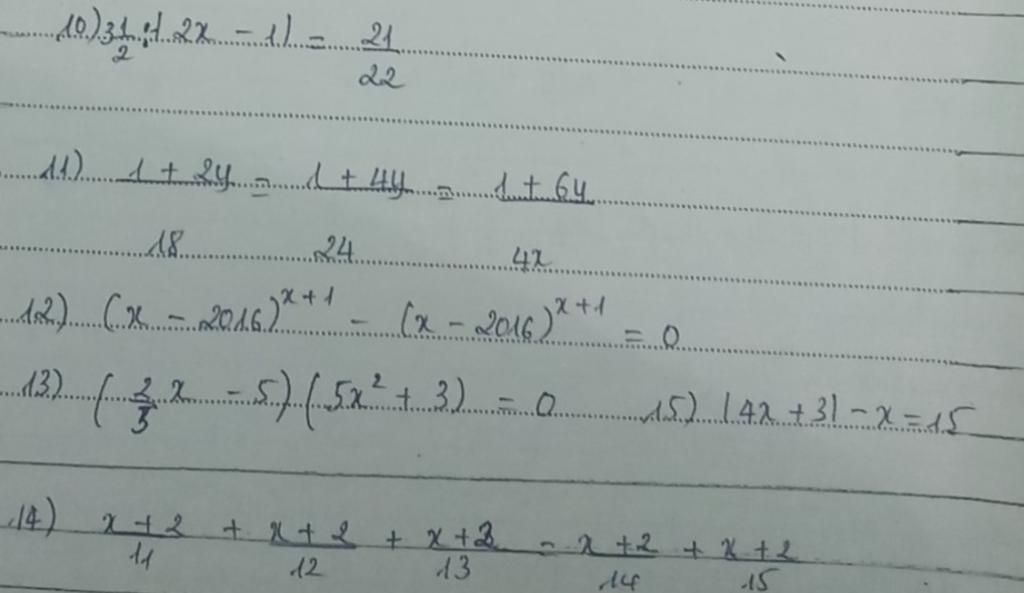 10) 3 1/2 : |2x - 1| = 21/22
11) (1 + 2y)/18 = (1 + 4y)/24 = (1 + 6y)/4x
12) (x - 2016)^(x+1) - (x - 2016)^(x+1) = 0
13) (2/3 x - 5)(5x² + 3) = 0 15) |4x + 3| - x = 15
14) (x + 2)/11 + (x + 2)/12 + (x + 2)/13 = (x + 2)/14 + (x + 2)/15